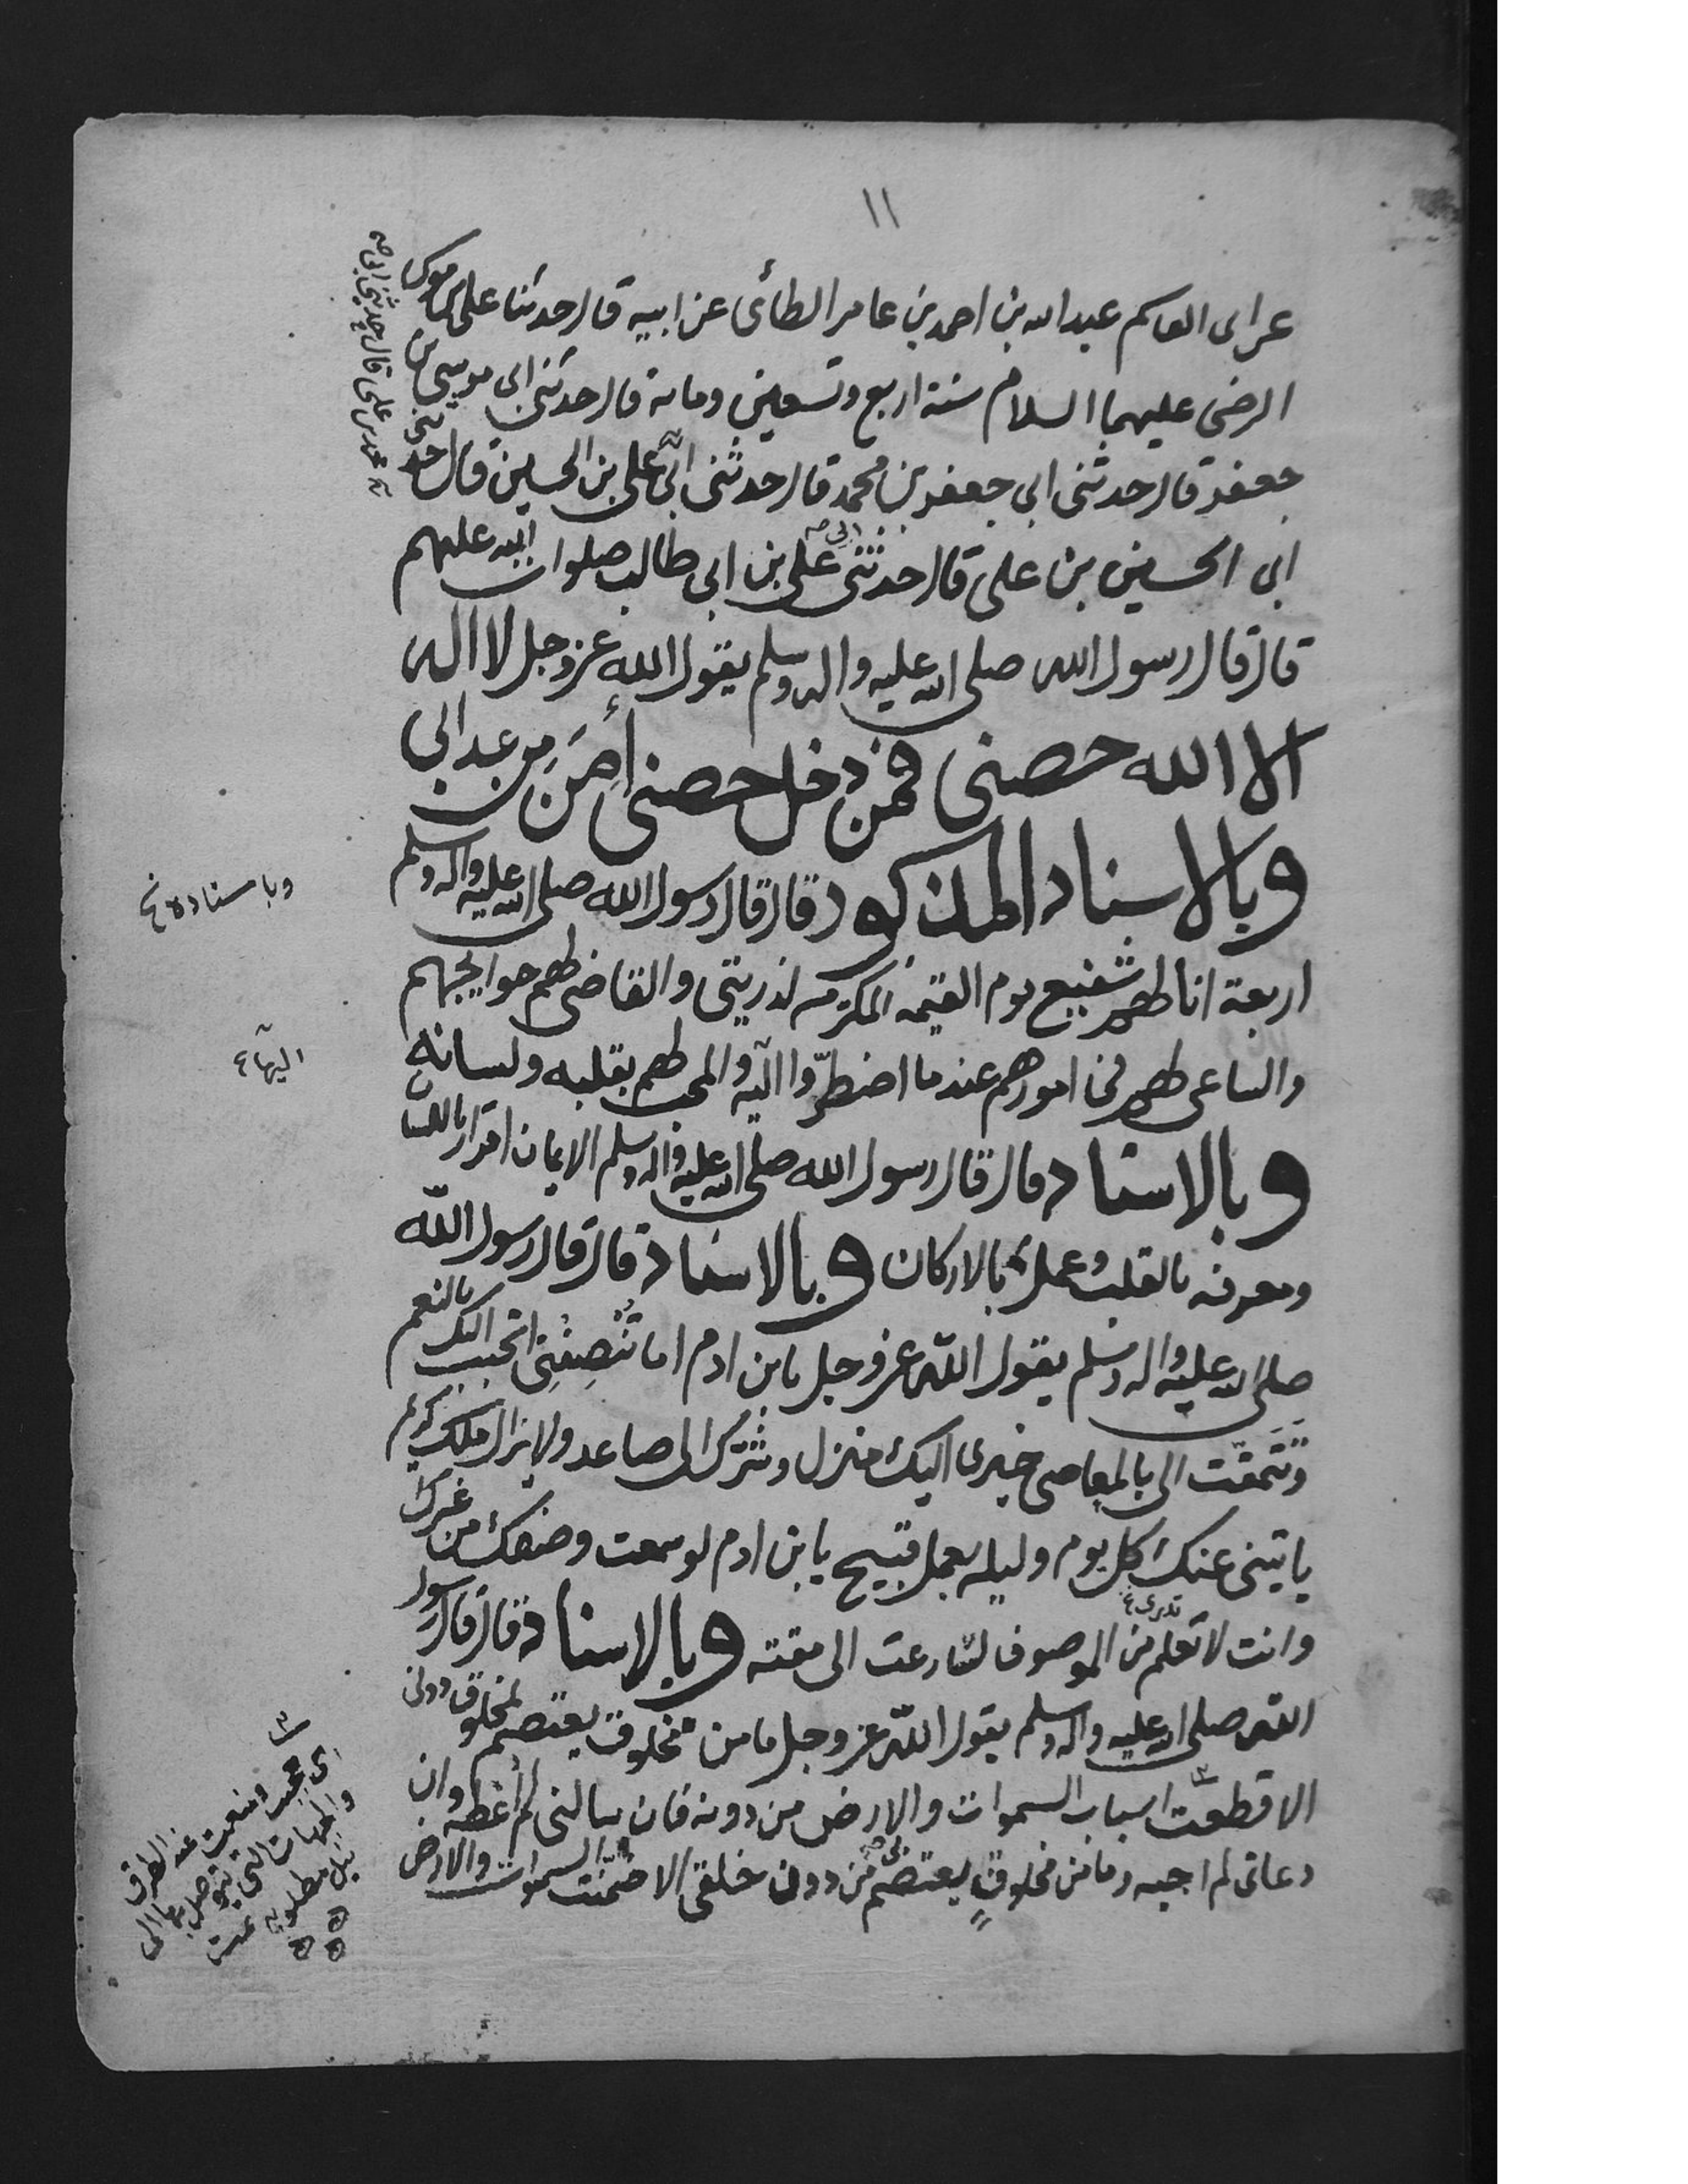 ١١
عن ابى القاسم عبد الله بن احمد بن عامر الطائى عن ابيه قال حدثنا على بن موسى
الرضى عليهما السلام سنة اربع وتسعين ومائة قال حدثنى ابى موسى بن
جعفر قال حدثنى ابى جعفر بن محمد قال حدثنى ابى على بن الحسين قال حدثنى
ابى الحسين بن على قال حدثنى ابى على بن ابى طالب صلوات الله عليهم
قال قال رسول الله صلى الله عليه واله وسلم يقول الله عز وجل لا اله
الا الله حصنى فمن دخل حصنى أمِنَ مِن عذابى
وبالاسناد المذكور قال قال رسول الله صلى الله عليه واله وسلم
اربعة انا لهم شفيع يوم القيمة المكرم لذريتى والقاضى لهم حوايجهم
والساعى لهم فى امورهم عندما اضطرّوا اليه والمحب لهم بقلبه ولسانه
وبالاسناد قال قال رسول الله صلى الله عليه واله وسلم الايمان اقرار باللسان
ومعرفه بالقلب وعمل بالاركان وبالاسناد قال قال رسول الله
صلى الله عليه واله وسلم يقول الله عز وجل يابن ادم اما تُنْصِفُنِى اتحبب اليك بالنعم
وتتمقّت الى بالمعاصى خيرى اليك منزل وشرّك الى صاعد ولا يزال ملك كريم
ياتينى عنك كل يوم وليله بعمل قبيح يا بن ادم لو سمعت وصفك من غيرك
وانت لا تعلم من الموصوف لسارعت الى مقته وبالاسناد قال قال رسول
الله صلى الله عليه واله وسلم يقول الله عز وجل ما من مخلوق يعتصم بمخلوق دونى
الا قطعت اسباب السموات والارض من دونه فان سالنى لم أعطه وان
دعانى لم اجبه وما من مخلوقٍ يعتصم بى من دون خلقى الا ضمّنت السموات والارض
محمد بن على قال حدثنى ابى صح
وباسناده خ
اليها
تدرى
اى حجبت ومنعت عنه الطرق
والجهات التى يتوصل بها الى
نيل مطلوبه تمت